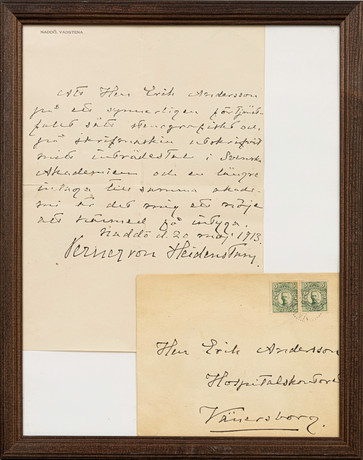 NADDÖ, VADSTENA
Att Herr Erik Andersson
på ett synnerligen förtjänst-
fullt sätt stenografiskt och
på skrifmaskin utskrifvit
mitt inträdestal i Svenska
Akademien och en längre
inlaga till samma akade-
mi är det mig ett nöje
att härmed få intyga.
Naddö d. 20 maj 1913.
Verner von Heidenstam.
Herr Erik Andersson
Hospitalskontoret
Vänersborg.